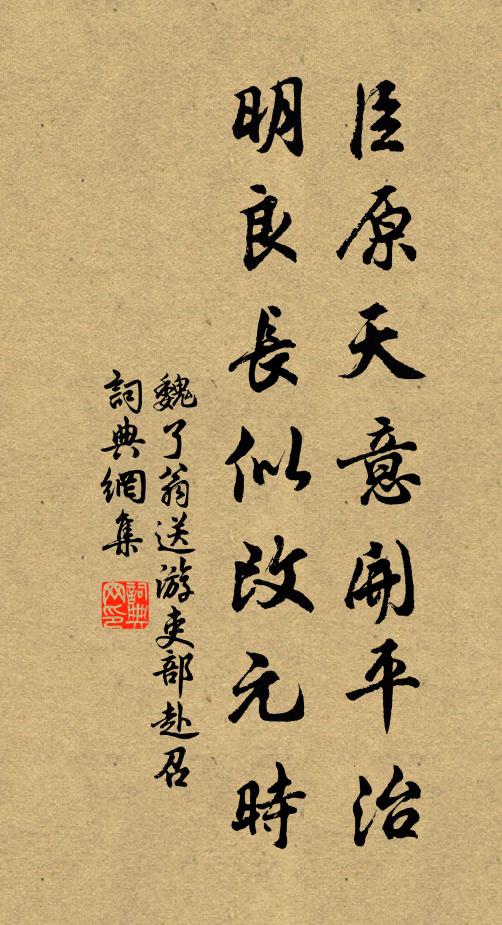 臣原天意開平治
明良長似改元時
魏了翁送游吏部赴召
詞典網集
詞典网印